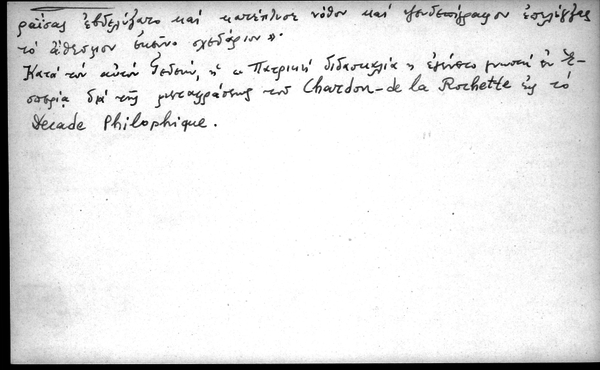 ραΐσας ἐβδελύξατο καί κατέπτυσε νόθον καί ψευδεπίγραφον
τό ἄθεσμον ἐκεῖνο σχεδάριον».
Κατά τόν αὐτόν Γεδεών, ἡ "Πατρική διδασκαλία" ἐγένετο γνωστή ἐν Ἑ-
σπερία διά τῆς μεταφράσεως τοῦ Chardon-de la Rochette εἰς τό
Decade Philophique.